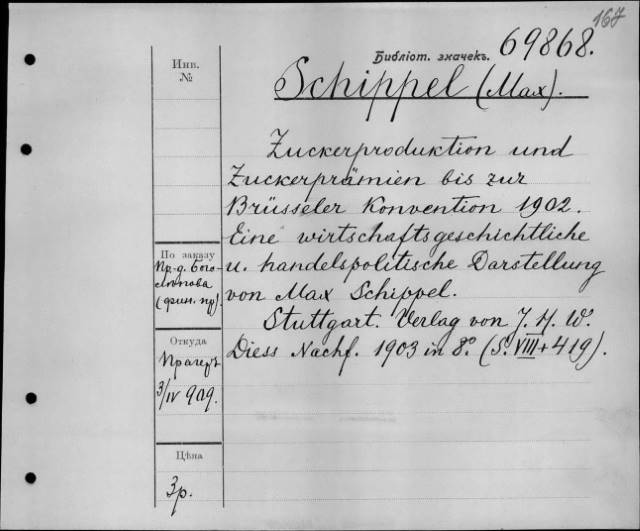 167
Библіот. значекъ. 69868.
Schippel (Max).
Инв.
№
Zuckerproduktion und
Zuckerprämien bis zur
Brüsseler Konvention 1902.
Eine wirtschaftsgeschichtliche
u. handelspolitische Darstellung
von Max Schippel.
Stuttgart. Verlag von J. H. W.
Diess Nachf. 1903 in 8º. (S. VIII+419).
По заказу
Пр-д. Бого-
лѣпова
(фин. пр).
Откуда
Прагеръ
3/IV 909.
Цѣна
3р.